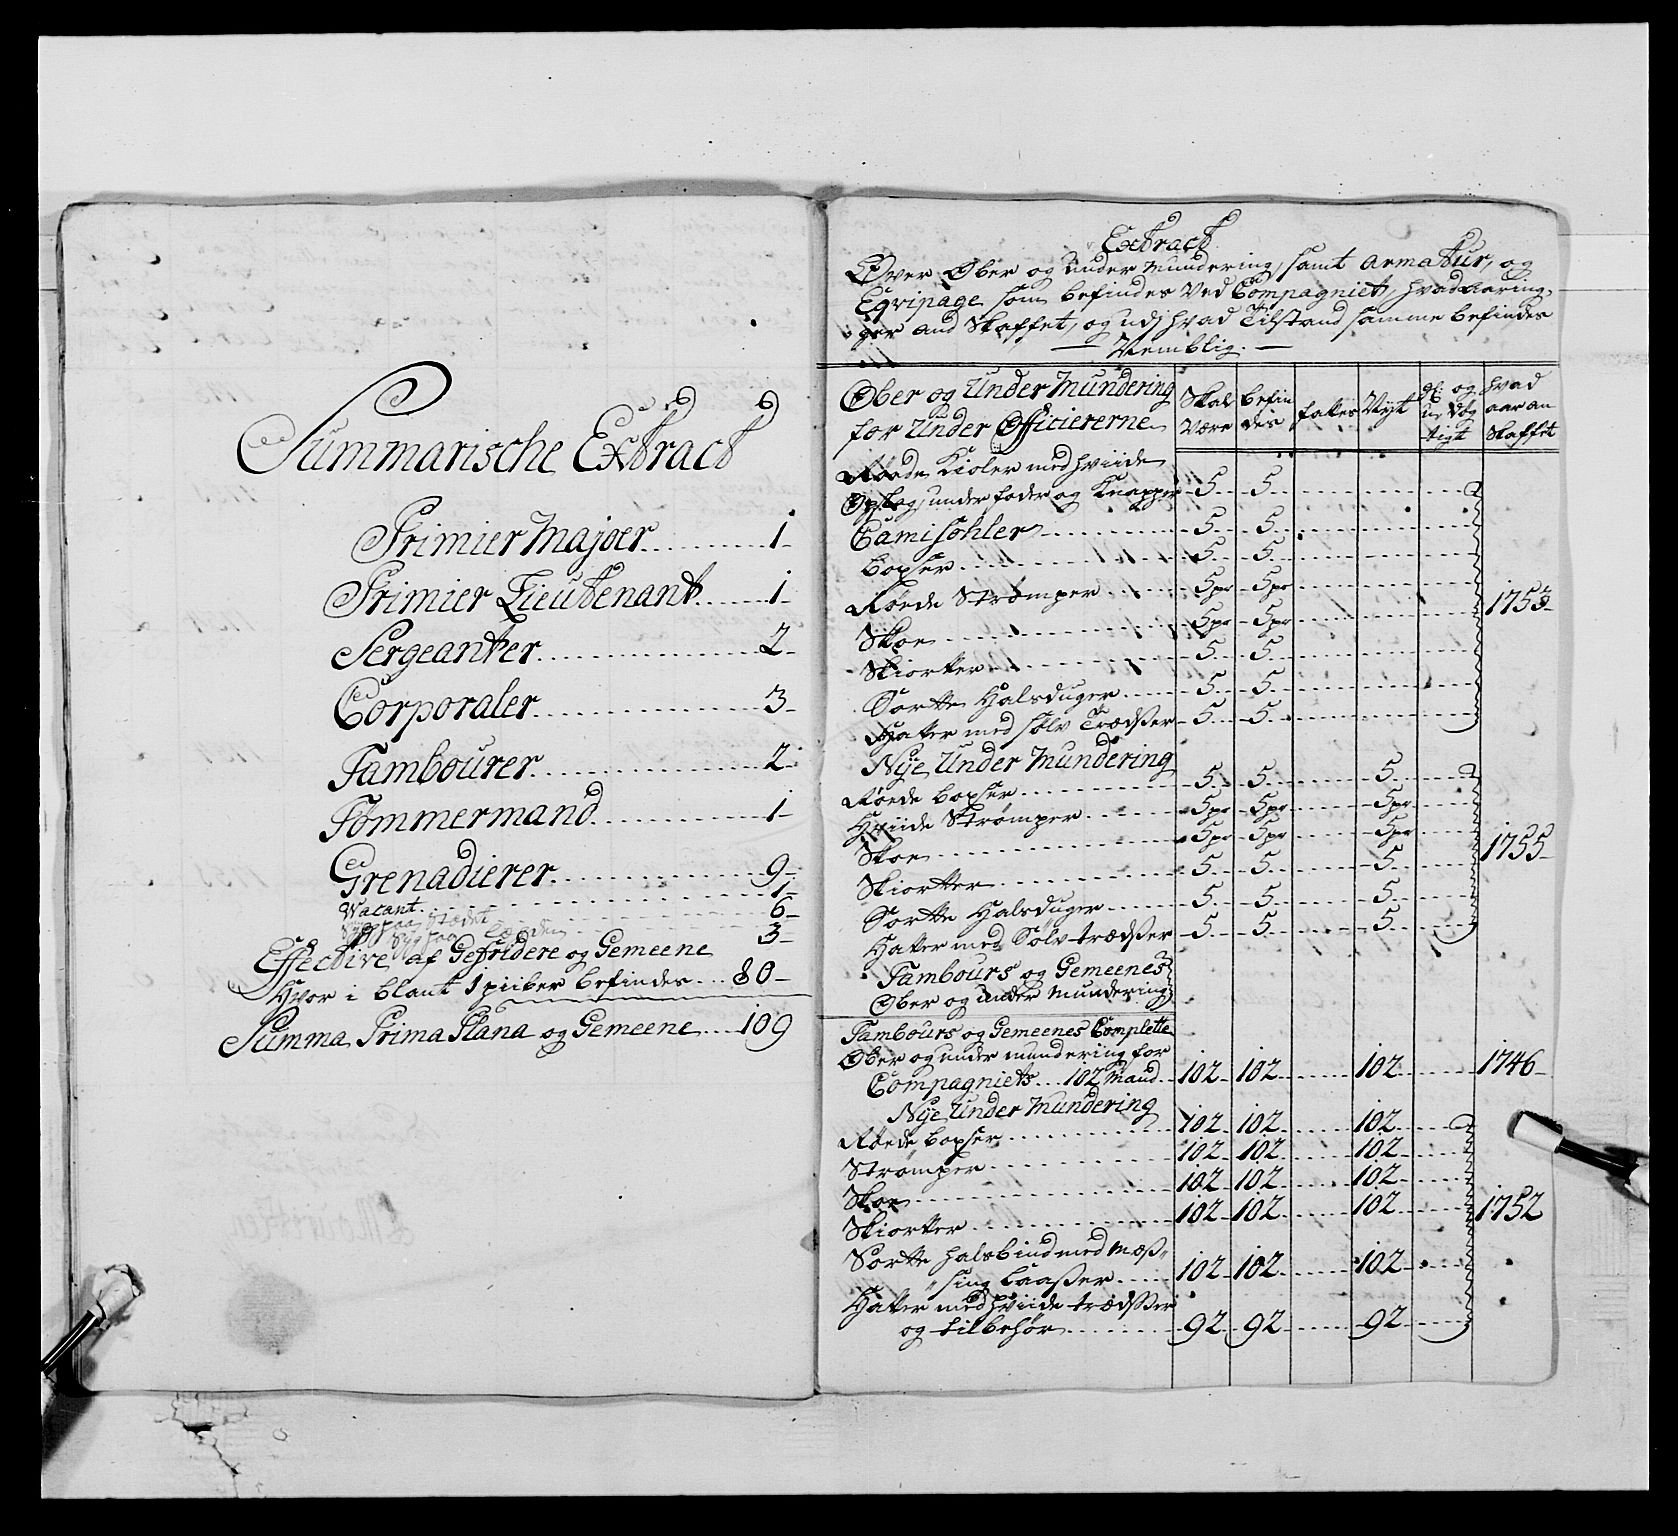 Summarische Extract
Primier Majoer 1
Primier Lieutenant 1
Sergeanter 2
Corporaler 3
Tambourer 2
Tømmermand 1
Grenadierer 9
Vacant 1
Syg paa Stædet 6
Syg paa Landet 3
Effective af Gefridere og Gemeene
Hvor i blant 1 piiber befindes 80
Summa Prima Plana og Gemeene 109
Extract
Over Ober og Under Mundering, samt Armatur, og
Eqvipage som befindes Ved Compagniet, hvad aaring
ger and Skaffet, og udj hvad Tilstand samme befindes
Nemblig.
Ober og Under Mundering for Under Officiererne | Skal Være | befin des | fattes | Nyt | gl: og u, døg tigt | hvad aar an Skaffet
Røade Kioler med hviide
Opslag under foder og Knapper 5 5
Camisohler 5 5
boxser 5 5
Røede Strømper 5 pr 5 pr 1753
Skoe 5 pr 5 pr
Skiorter 5 5
Sorte Halsduger 5 5
Hatter med sølv Trædsser 5 5
Nye Under Mundering
Røede boxser 5 5 5
Hviide Strømper 5 pr 5 pr 5 pr
Skoe 5 pr 5 pr 5 pr 1755
Skiorter 5 5 5
Sorte Halsduger 5 5 5
Hatter med Sølv trædsser 5 5 5
Tambours og Gemeenes
Ober og under Mundering
Tambours og Gemeenes Complette
Ober og under mundering for
Compagniets 102 Mand 102 102 102 1746
Nye Under Mundering
Røede boxser 102 102 102
Strømper 102 102 102
Skoe 102 102 102
Skiorter 102 102 102 1752
Sorte halsbind med Mæs
sing Laasser 102 102 102
Hatter med hviide trædsser
og tilbehør 92 92 92